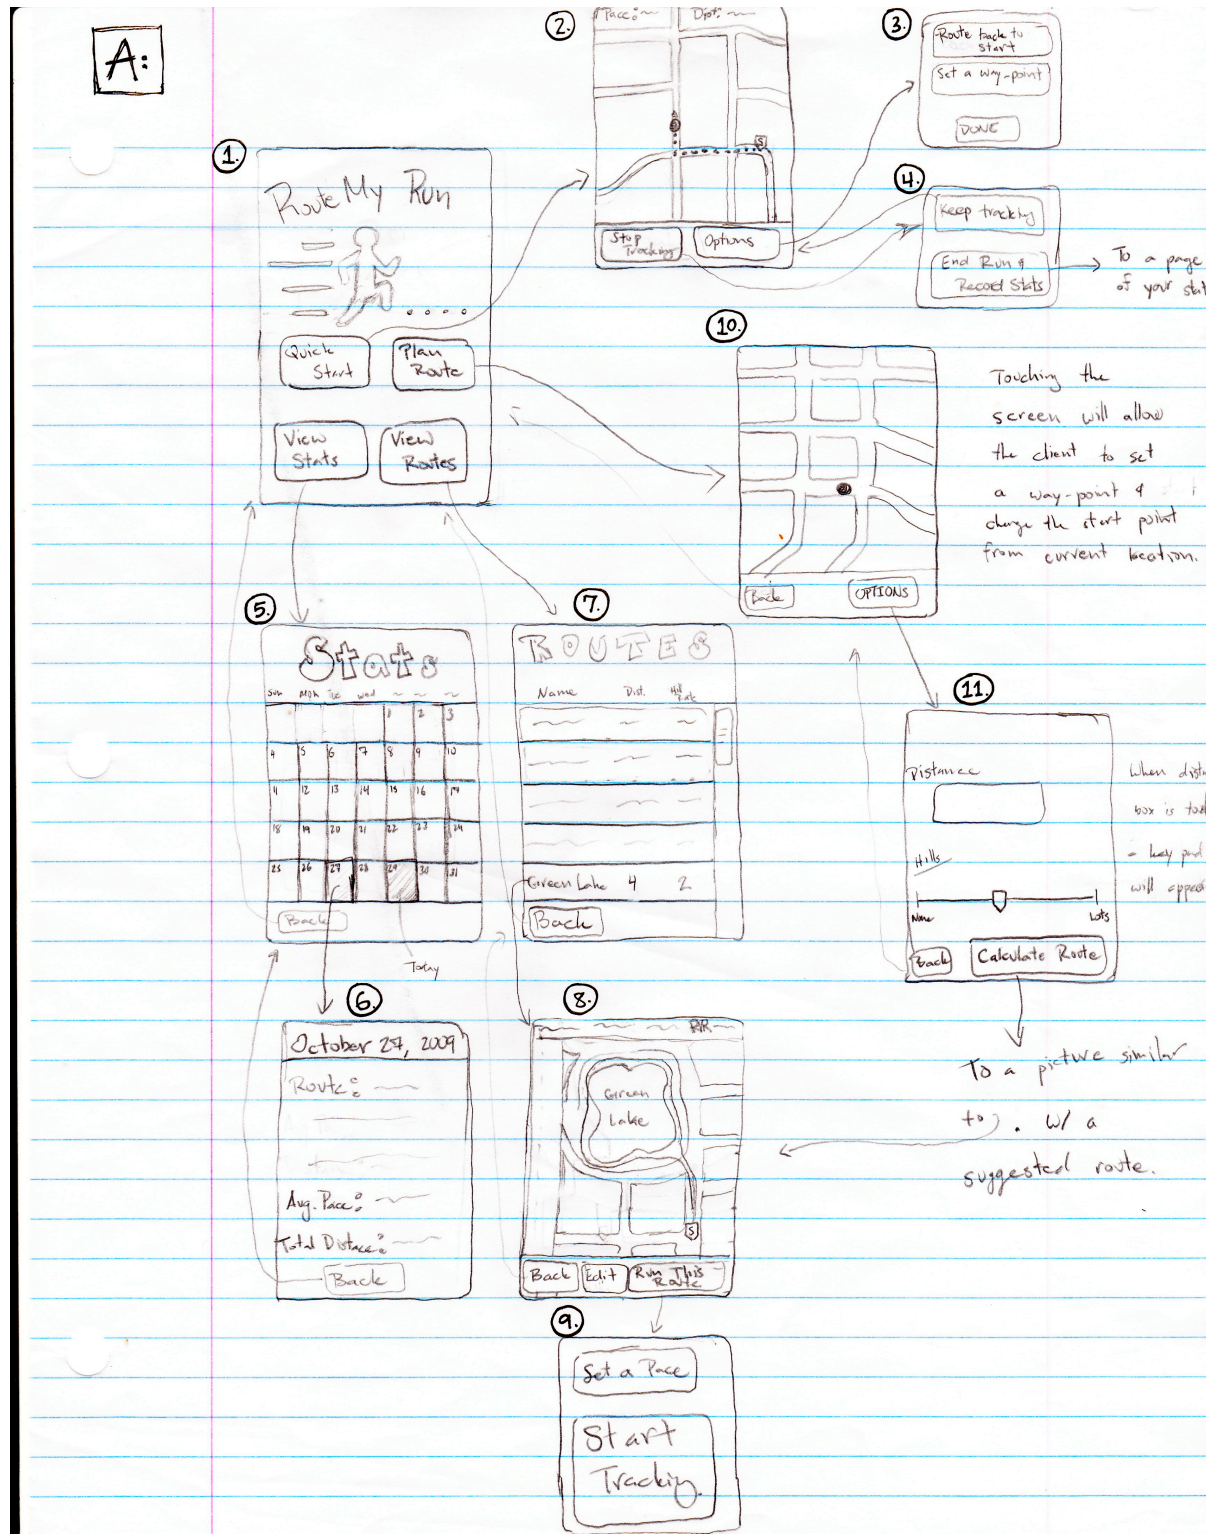 A:
1.
Route My Run
Quick
Start
Plan
Route
View
Stats
View
Routes
2.
Pace:
Dist:
S
Stop
Tracking
Options
3.
Route back to
start
Set a way-point
DONE
4.
Keep tracking
End Run &
Record Stats
To a page
of your
10.
Back
OPTIONS
Touching the
screen will allow
the client to set
a way-point &
change the start point
from current location.
5.
Stats
Sun Mon Tue Wed
1 2 3
4 5 6 7 8 9 10
11 12 13 14 15 16 17
18 19 20 21 22 23 24
25 26 27 28 29 30 31
Back
Today
7.
ROUTES
Name Dist. Hill
Rate
Green Lake 4 2
Back
11.
Distance
Hills
None Lots
Back Calculate Route
When
box is
- key pad
will
6.
October 27, 2009
Route:
Avg. Pace:
Total Distace:
Back
8.
Green
Lake
S
Back Edit Run This
Route
To a picture similar
to . w/ a
suggested route.
9.
Set a Pace
Start
Tracking.